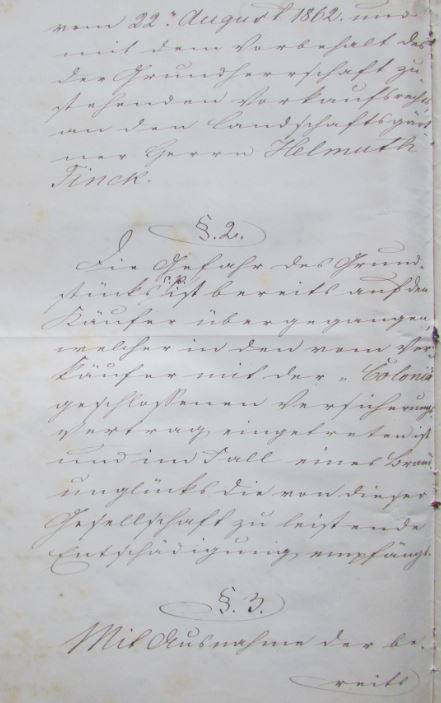 vom 22ten August 1862. und
mit dem Vorbehalt des
der Grundherrschaft zu-
stehenden Vorkaufsrechts
an den Landschaftsgärt-
ner Herrn Helmuth
Finck.
§. 2.
Die Gefahr des Grund-
stücks c. p. ist bereits auf den
Käufer übergegangen,
welcher in den vom Ver-
käufer mit der „Colonia
geschlossenen Versicherungs-
vertrag eingetreten ist
und im Fall eines Brand-
unglücks die von dieser
Gesellschaft zu leistende
Entschädigung empfängt.
§. 3.
Mit Ausnahme der be-
reits